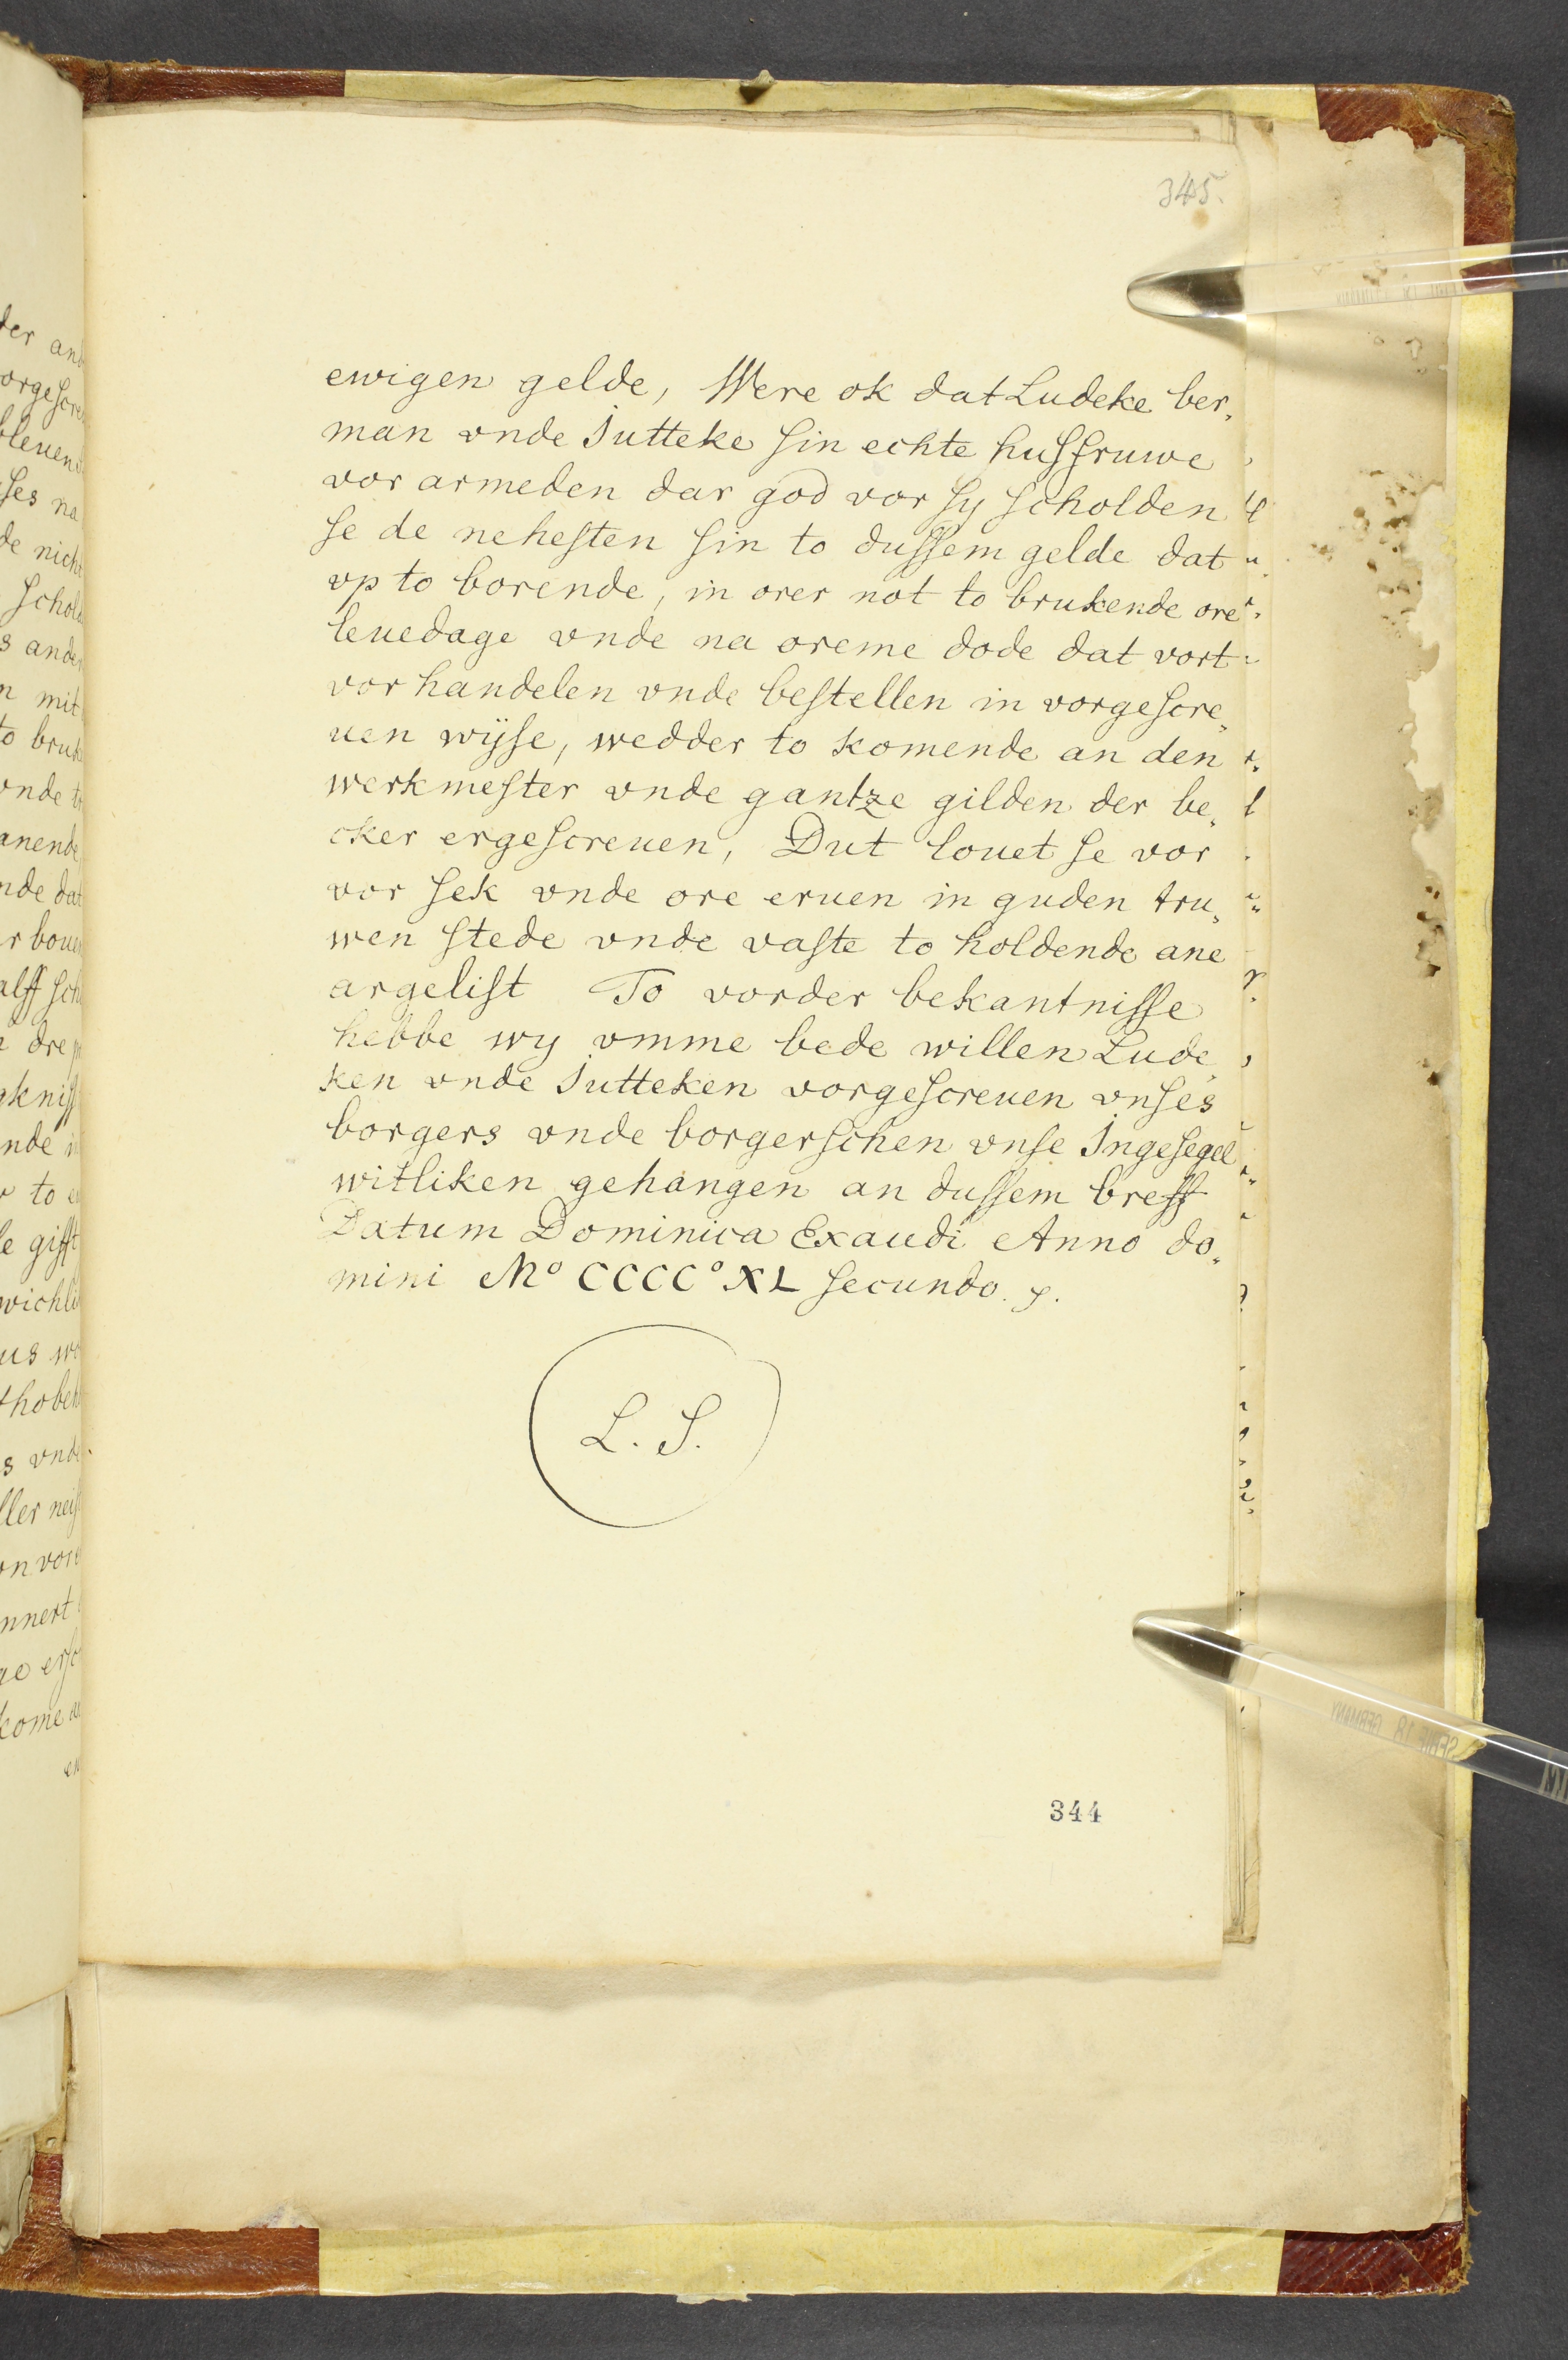 345.
ewigen gelde, Were ok dat Ludeke ber„
man vnde Jutteke ſin echte huſfruwe
vor armeden dar god vor ſy ſcholden
ſe de neheſten ſin to duſſem gelde dat
vp to borende, in orer not to brukende ore
leuedage vnde na oreme dode dat vort
vor handelen vnde beſtellen in vorgeſcre„
uen wijſe, wedder to komende an den
werkmeſter vnde gantze gilden der be„
cker ergeſcreuen, Dut louet ſe vor
vor ſek vnde ore eruen in guden tru„
wen ſtede vnde vaſte to holdende ane
argeliſt To vorder bekantniſſe
hebbe wy vmme bede willen Lude„
ken vnde Jutteken vorgeſcreuen vnſes
borgers vnde borgerſchen vnſe Jngeſegel
witliken gehangen an duſſem breff
Datum Dominica Exaudi Anno do„
mini Mº CCCCº XL ſecundo. p.
L. S.
344